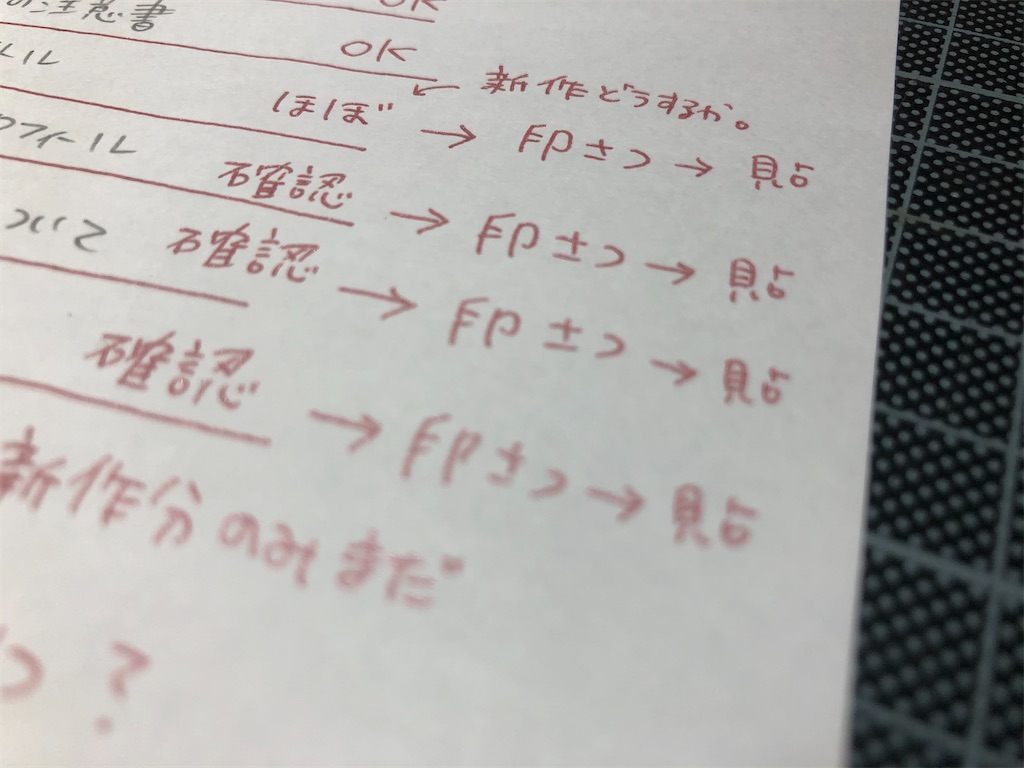 OK
の注意書 OK
← 新作どうするか。
ール ほぼ → 印さつ → 貼
フィール 確認 → 印さつ → 貼
ついて 確認 → 印さつ → 貼
確認 → 印さつ → 貼
新作分のみまだ
つ?